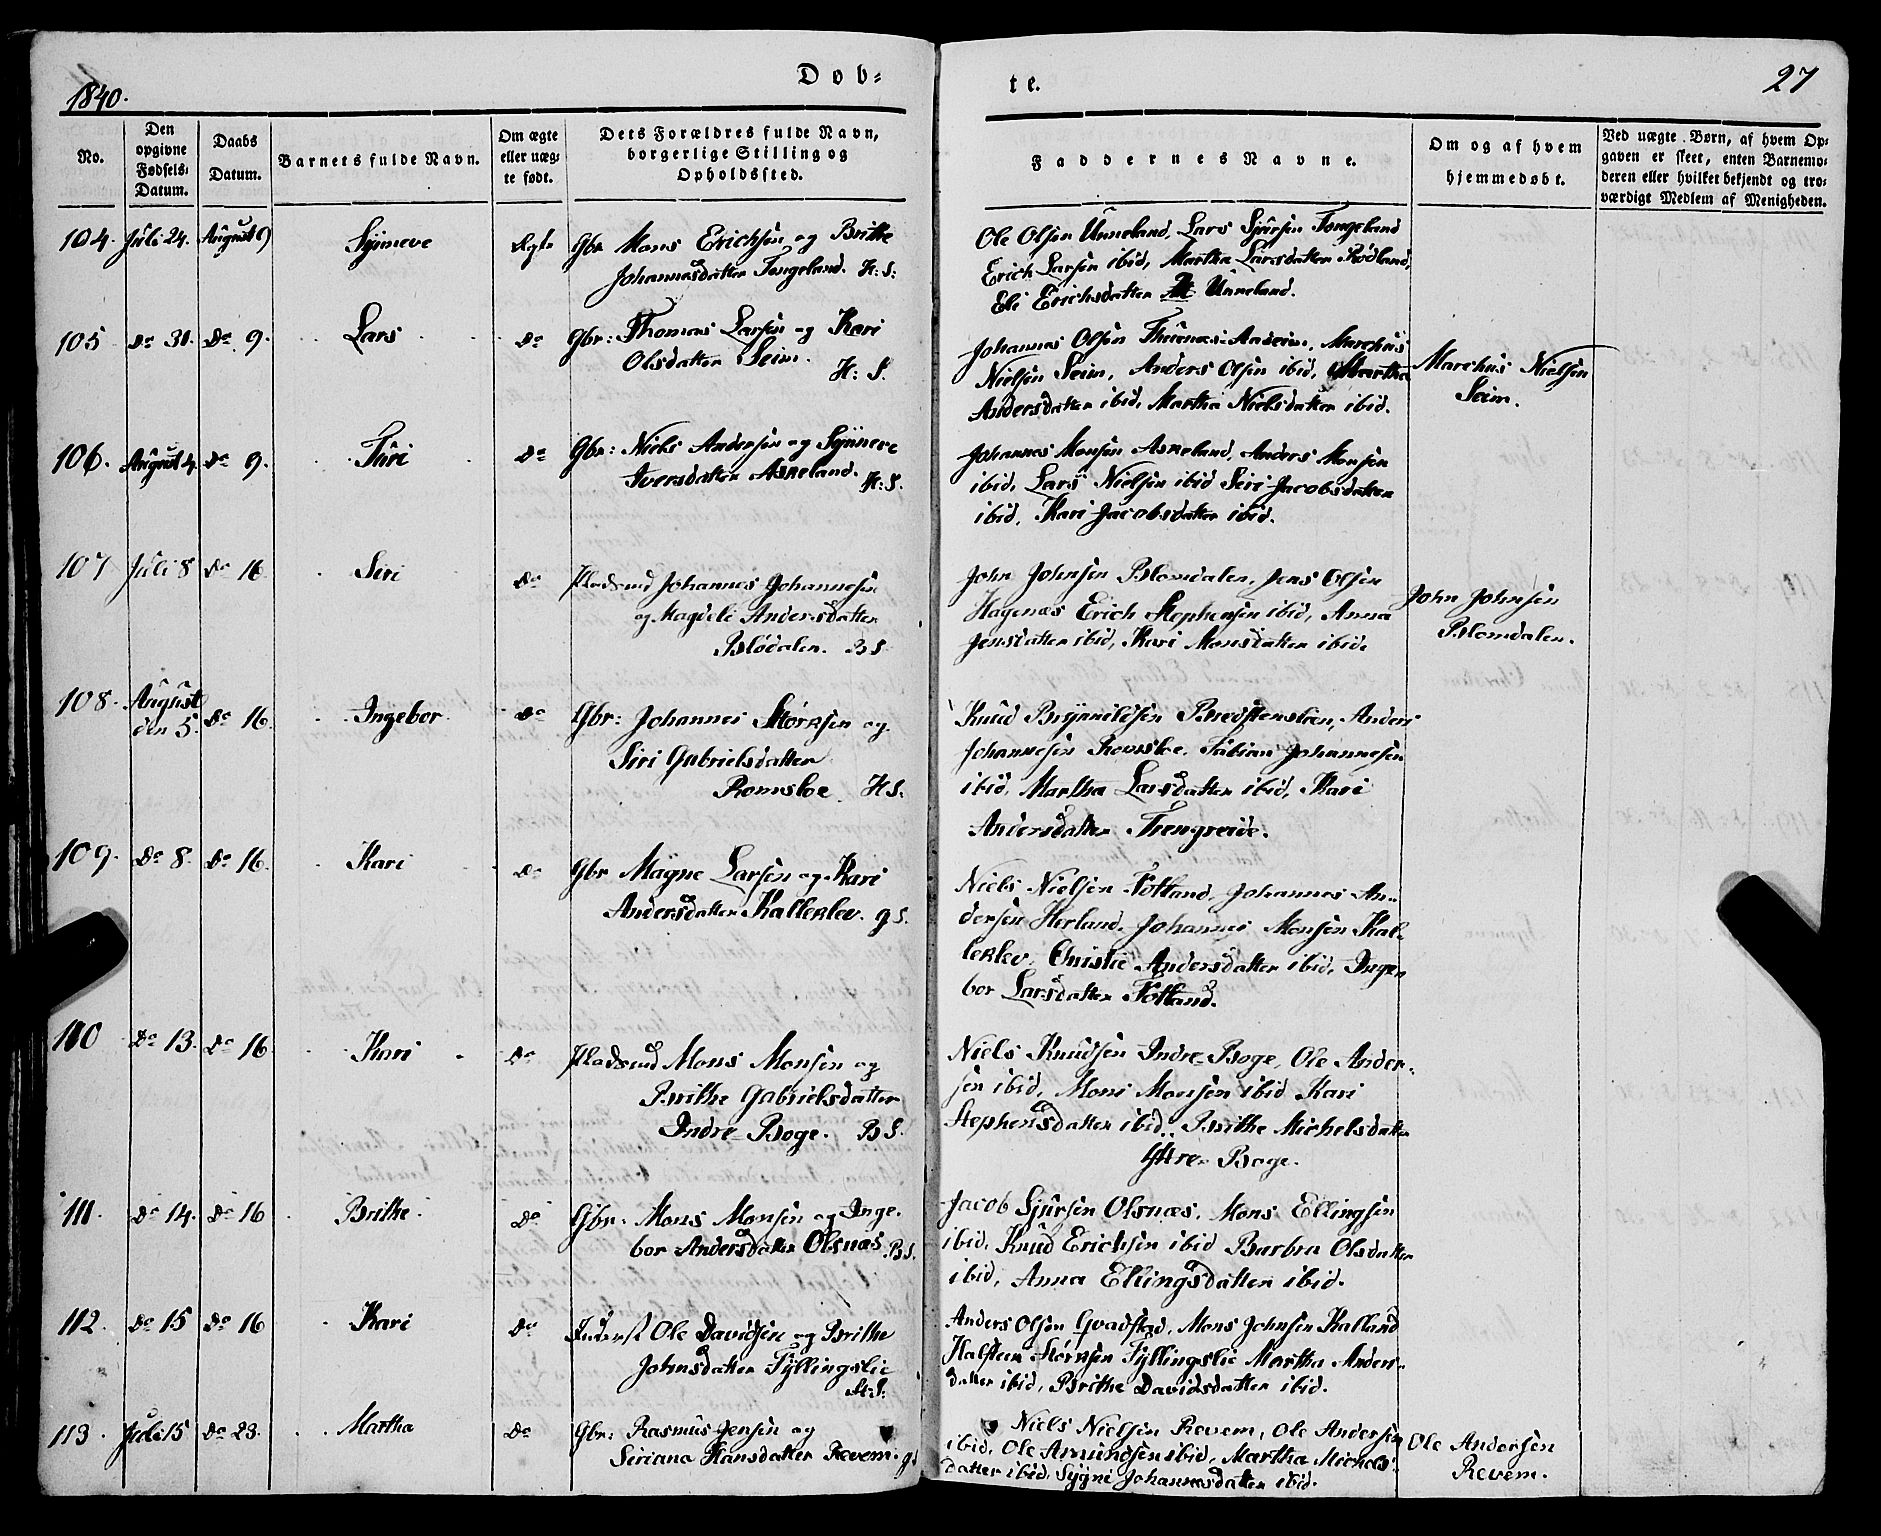 1840.
Døb=
te.
27
No.
Den opgivne Fødsels=Datum.
Daabs Datum.
Barnets fulde Navn.
Om ægte eller uæg=te født.
Dets Forældres fulde Navn, borgerlige Stilling og Opholdssted.
Faddernes Navne.
Om og af hvem hjemmedøbt.
Ved uægte Børn, af hvem Op=gaven er skeet, enten Barnemo=deren eller hvilket bekjendt og tro=værdigt Medlem af Menigheden.
104. Juli 24. August 9 Synneve Ægte Gbr Mons Erichsen og Brithe
Johannesdatter Tengeland. H: S:
Ole Olsen Unneland, Lars Sjursen Tengeland
Erich Larsen ibid, Martha Larsdatter Rødland,
Eli Erichsdatter Unneland.
105 Do 31. Do 9. Lars Do Gbr: Thomas Larsen og Kari
Olsdatter Seim. H: S.
Johannes Olsen Aaseim, Marchus
Nielsen Seim, Anders Olsen ibid, Martha
Andersdatter ibid, Martha Nielsdatter ibid.
Marchus Nielsen
Seim.
106. August 4. Do 9. Turi Do Gbr: Niels Andersen og Synneve
Iversdatter Asneland. H: S.
Johannes Monsen Asneland, Anders Monsen
ibid, Lars Nielsen ibid Siri Jacobsdatter
ibid, Kari Jacobsdatter ibid.
107 Juli 8 Do 16 Siri Do Pladsmd Johannes Johannesen
og Magdeli Andersdatter
Blødalen. B S
John Johnsen Blomdalen, Jens Olsen
Hagenæs Erich Stephensen ibid, Anna
Jensdatter ibid, Kari Monsdatter ibid.
John Johnsen
Blomdalen.
108. August
den 5. Do 16. Ingebor Do Gbr: Johannes Størksen og
Siri Gabrielsdatter
Romsloe. H S.
Knud Brynnildsen Bredstensteen, Anders
Johannesen Romsloe, Fabian Johannesen
ibid, Martha Larsdatter ibid, Kari
Andersdatter Trengereide.
109. Do 8. Do 16. Kari Do Gbr Magne Larsen og Kari
Andersdatter Kalleklev. g S.
Niels Nielsen Totland, Johannes An=
dersen Herland, Johannes Monsen Kal=
leklev, Christie Andersdatter ibid, Inge
bor Larsdatter Totland.
110 Do 13. Do 16 Kari Do Pladsmd Mons Monsen og
Brithe Gabrielsdatter
Indre=Boge. B S.
Niels Knudsen Indre=Boge, Ole Ander=
sen ibid, Mons Monsen ibid Kari
Stephensdatter ibid, Brithe Michelsdatter
Ytre=Boge.
111. Do 14. Do 16 Brithe Do Gbr. Mons Monsen og Inge.
bor Andersdatter Olsnæs. B S.
Jacob Sjursen Olsnæs, Mons Ellingsen
ibid, Knud Erichsen ibid Barbra Olsdatter
ibid, Anna Ellingsdatter ibid.
112. Do 15 Do 16 Kari Do Inderst Ole Davidsen og Brithe
Johnsdatter Fyllingslie
H: S:
Anders Olsen Gvadstad, Mons Johnsen Kalland
Halsteen Størksen Fyllingslie Martha Anders=
datter ibid, Brithe Davidsdatter ibid.
113. Juli 15 Do 23. Martha Do Gbr: Rasmus Jensen og
Siriana Hansdatter Revem. g S
Niels Nielsen Revem, Ole Andersen
ibid, Ole Amundsen ibid, Martha Michels=
datter ibid, Sygni Johannesdatter ibid.
Ole Andersen
Revem.